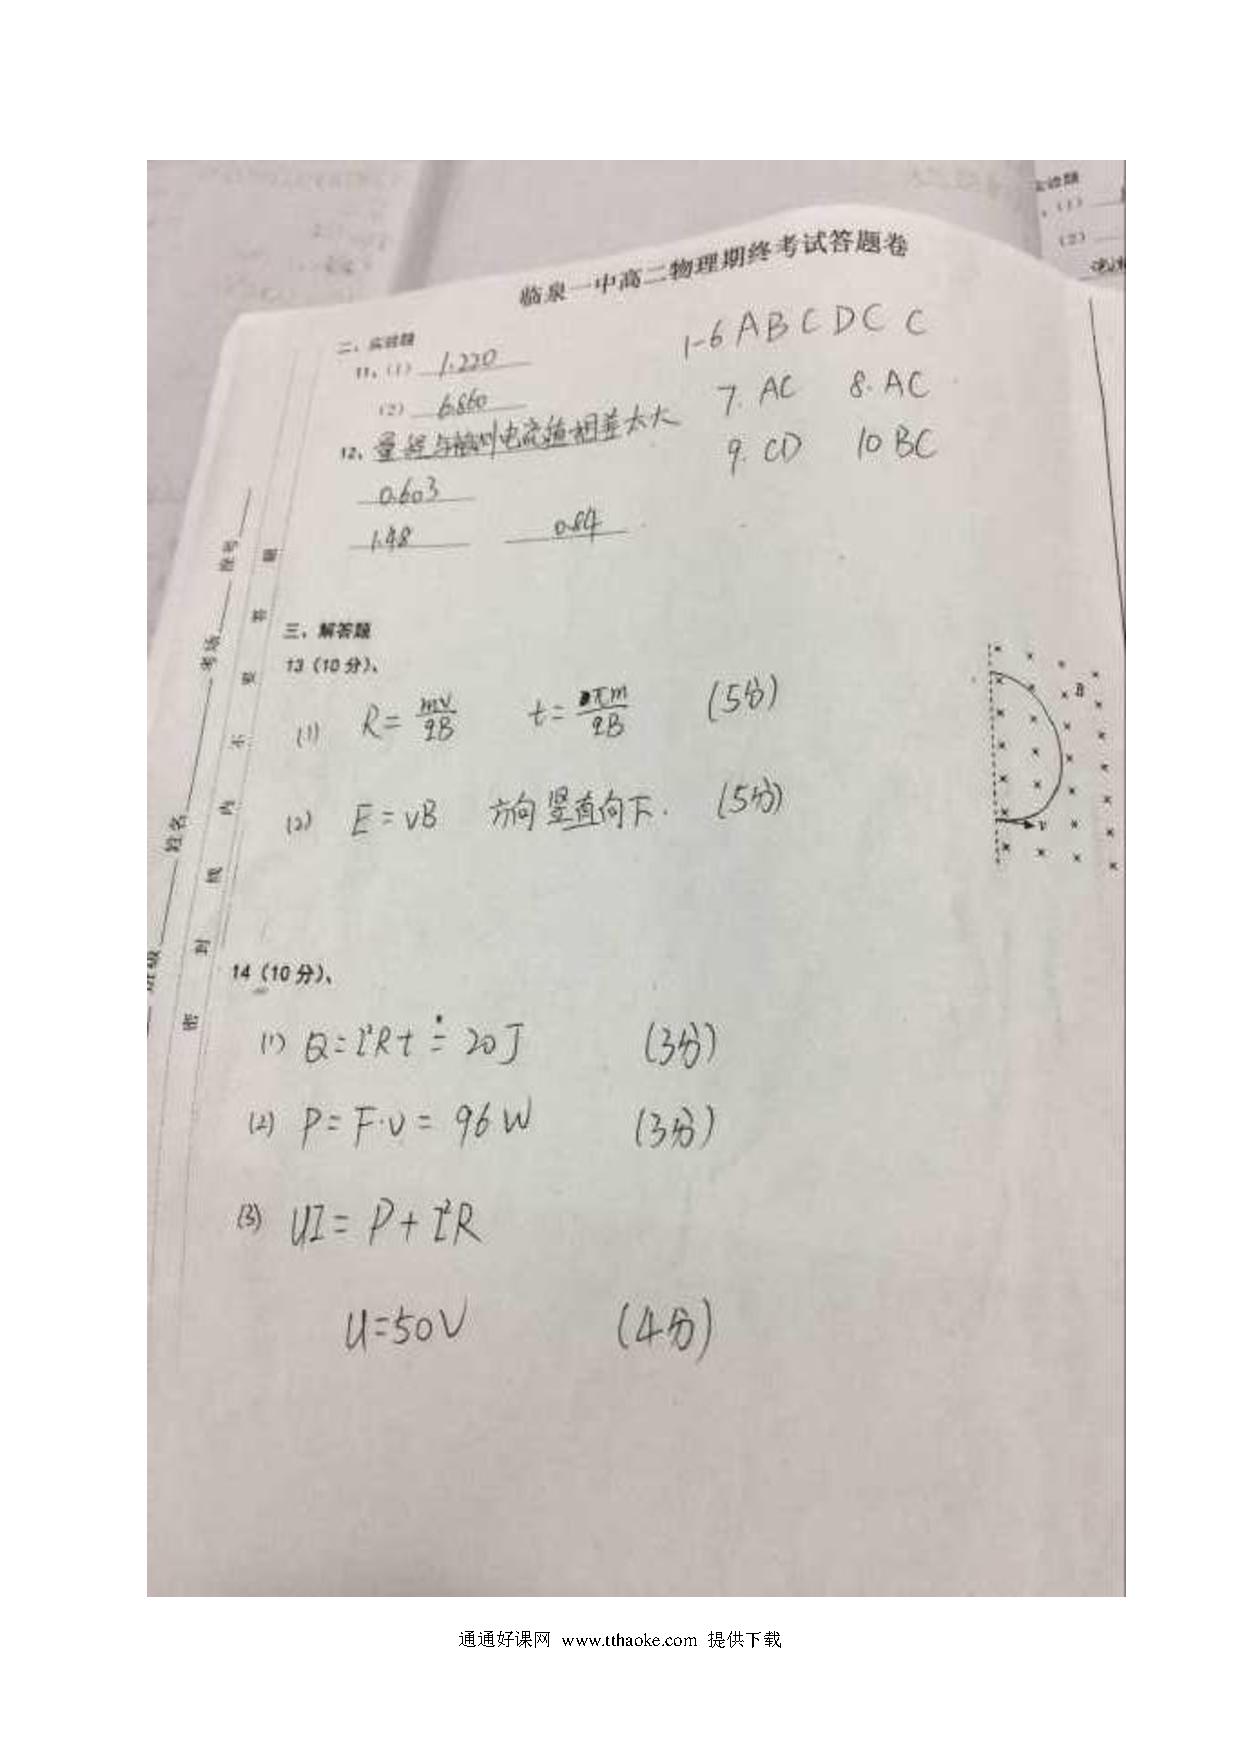 实验题
、(1)
(2)
临泉一中高二物理期终考试答题卷
二、实验题
11、(1) 1.220
(2) 6.860
12、量程与被测电流值相差太大
0.603
1.48 0.84
1-6 A B C D C C
7. AC 8. AC
9. CD 10 BC
座号
考场
姓名
班级
密 封 线 内 不 要 答 题
三、解答题
13 (10分)、
(1) R = mv/qB t = πm/qB (5分)
(2) E = vB 方向竖直向下. (5分)
B
v
14 (10分)、
(1) Q = I²Rt = 20J (3分)
(2) P = F·v = 96W (3分)
(3) UI = P + I²R
U=50V (4分)
通通好课网 www.tthaoke.com 提供下载